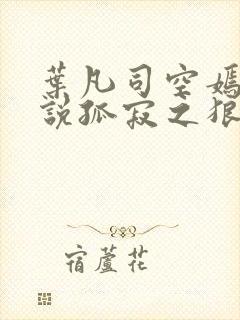 葉凡司空嫣
說孤寂之狠
宿蘆花